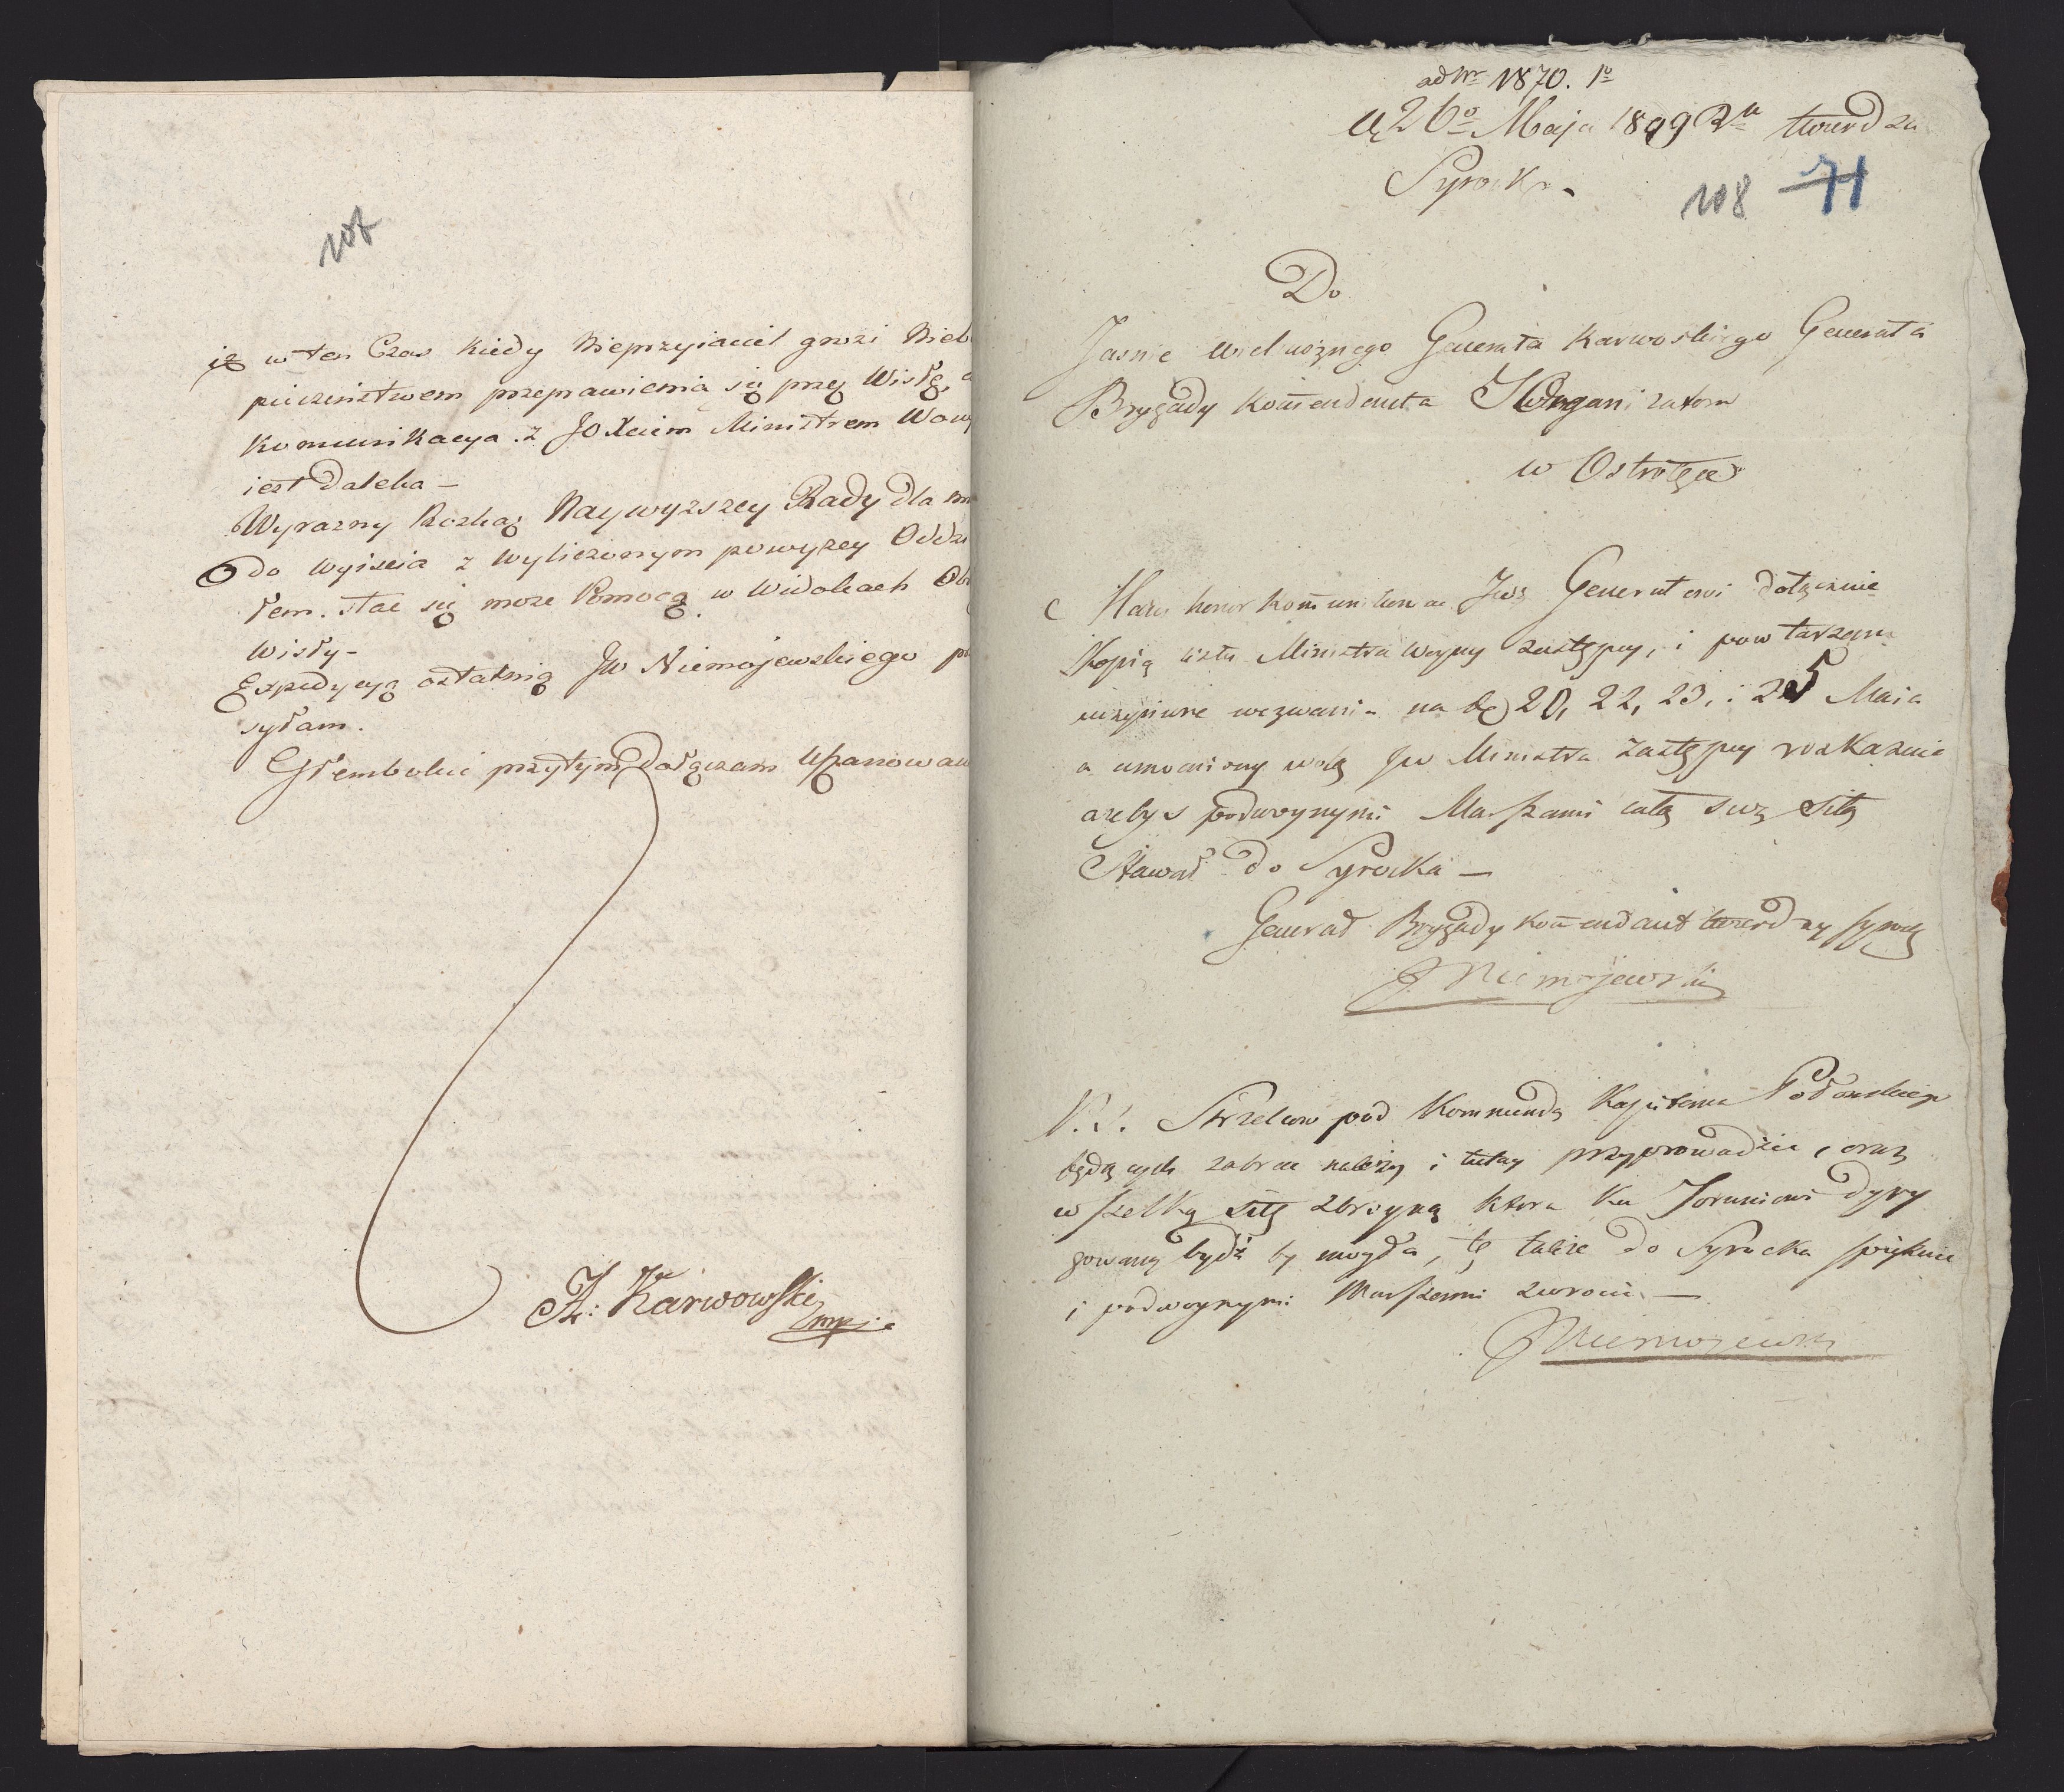 107
iż w ten Czas kiedy Nieprzyiaciel grozi Nieb
pieczeństwem przeprawienia się przez Wisłę,
Kommunikacya z JO Xciem Ministrem Wony
iest Daleka —
Wyrazny Rozkaz Naywyzszey Rady dla
do wyiscia z wyliczonym powyzey Oddz
łem. Stac się moze Pomocą w Widokach Ob
Wisły —
Expedycyą ostatnią JW Niemojewskiego
syłam.
Głemboki przytym Dołączam Uszanowan
Karwowski
mp
ad Nr 1870. 1o
26o Maja 1809 R
Syrocka
108 71
Do
Jasnie Wielmożnego Generała Karwoskiego Generała
Brygady Kommendanta Organizatora
w Ostrołęce
Mam honor kommunikowac JWo Generałowi dołączenie
Kopią listu Ministra Woyny zastępcy, i powtarzam
uczynione wezwania na 20, 22, 23, i 25 Maia
a umocniony wolą JW Ministra Zastępcy rozkazuie
azebys podwoynymi Marszami całą swą siłą
Stawał do Syrocka —
Generał Brygady Kommendant twierdzy
Niemojewski
P.S. Strzelcow pod Kommendą Kapitana
będących zabrac nalezy i tutay przyprowadzic, oraz
wszelką siłę zbroyną ktora ku Toruniowi dyry
gowaną bydź by mogła, tę także do Syrocka spiesznie
i podwoynymi Marszami zwrocic —
Niemojewski